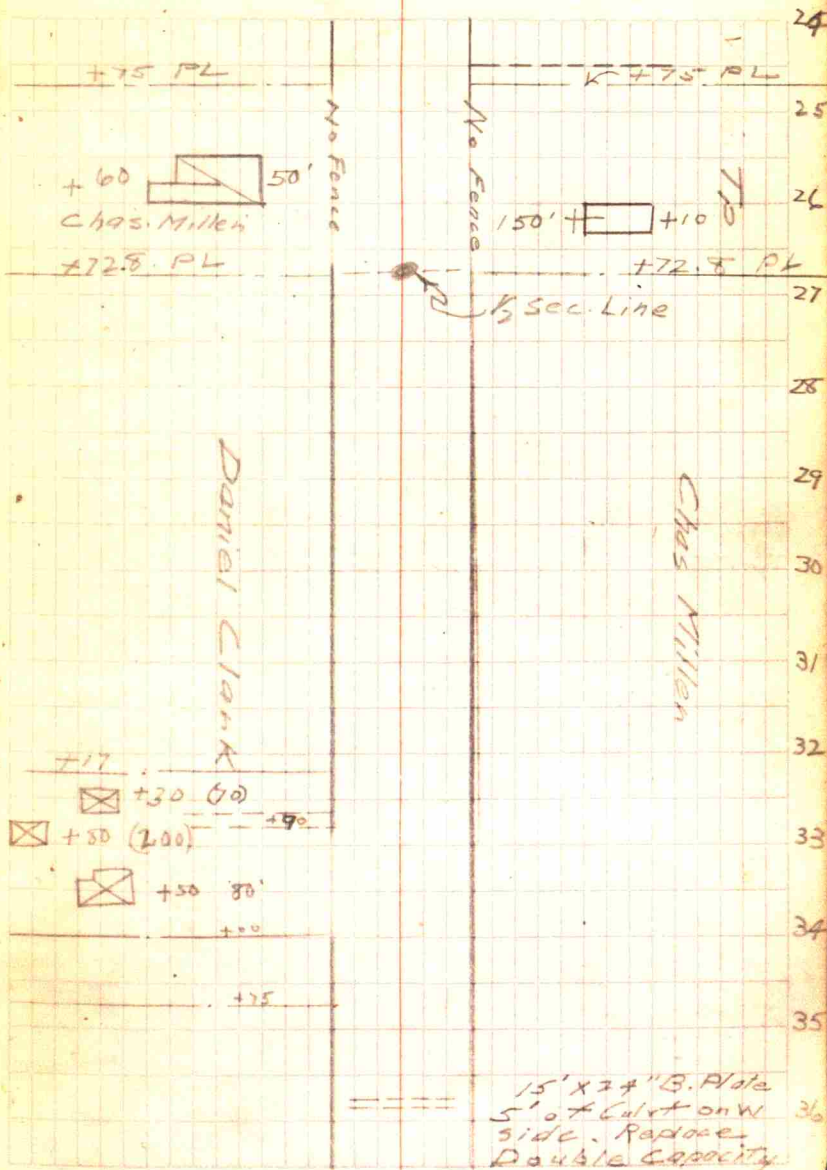 24
+75 PL
+75 PL
25
No Fence
No Fence
+60
50'
TP
26
Chas. Miller
150'
+10
+72.8 PL
+72.8 PL
27
1/2 Sec. Line
28
Daniel Clark
Chas Miller
29
30
31
32
+17
+30 (70)
+90
+80 (200)
33
+50 80'
+00
34
+75
35
15' X 24" B. Plate
5' of Culvt on W
side. Replace
Double Capacity
36